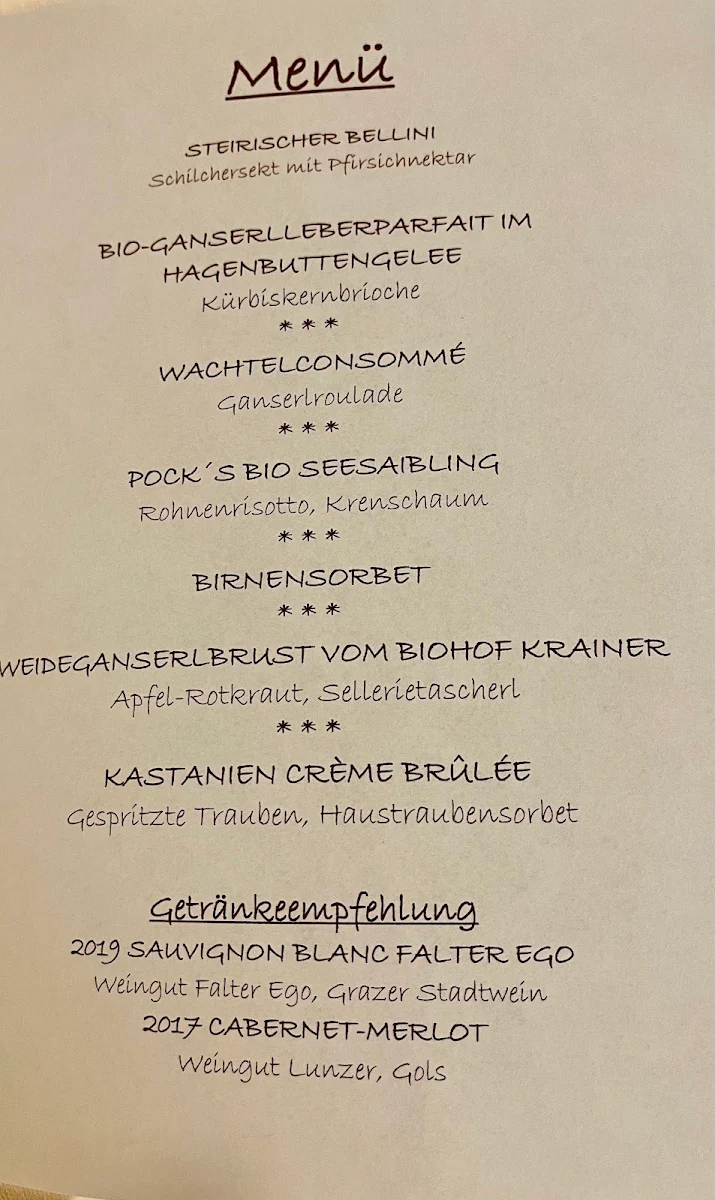 Menü
STEIRISCHER BELLINI
Schilchersekt mit Pfirsichnektar
BIO-GANSERLLEBERPARFAIT IM
HAGENBUTTENGELEE
Kürbiskernbrioche
***
WACHTELCONSOMMÉ
Ganserlroulade
***
POCK´S BIO SEESAIBLING
Rohnenrisotto, Krenschaum
***
BIRNENSORBET
***
WEIDEGANSERLBRUST VOM BIOHOF KRAINER
Apfel-Rotkraut, Sellerietascherl
***
KASTANIEN CRÈME BRÛLÉE
Gespritzte Trauben, Haustraubensorbet
Getränkeempfehlung
2019 SAUVIGNON BLANC FALTER EGO
Weingut Falter Ego, Grazer Stadtwein
2017 CABERNET-MERLOT
Weingut Lunzer, Gols